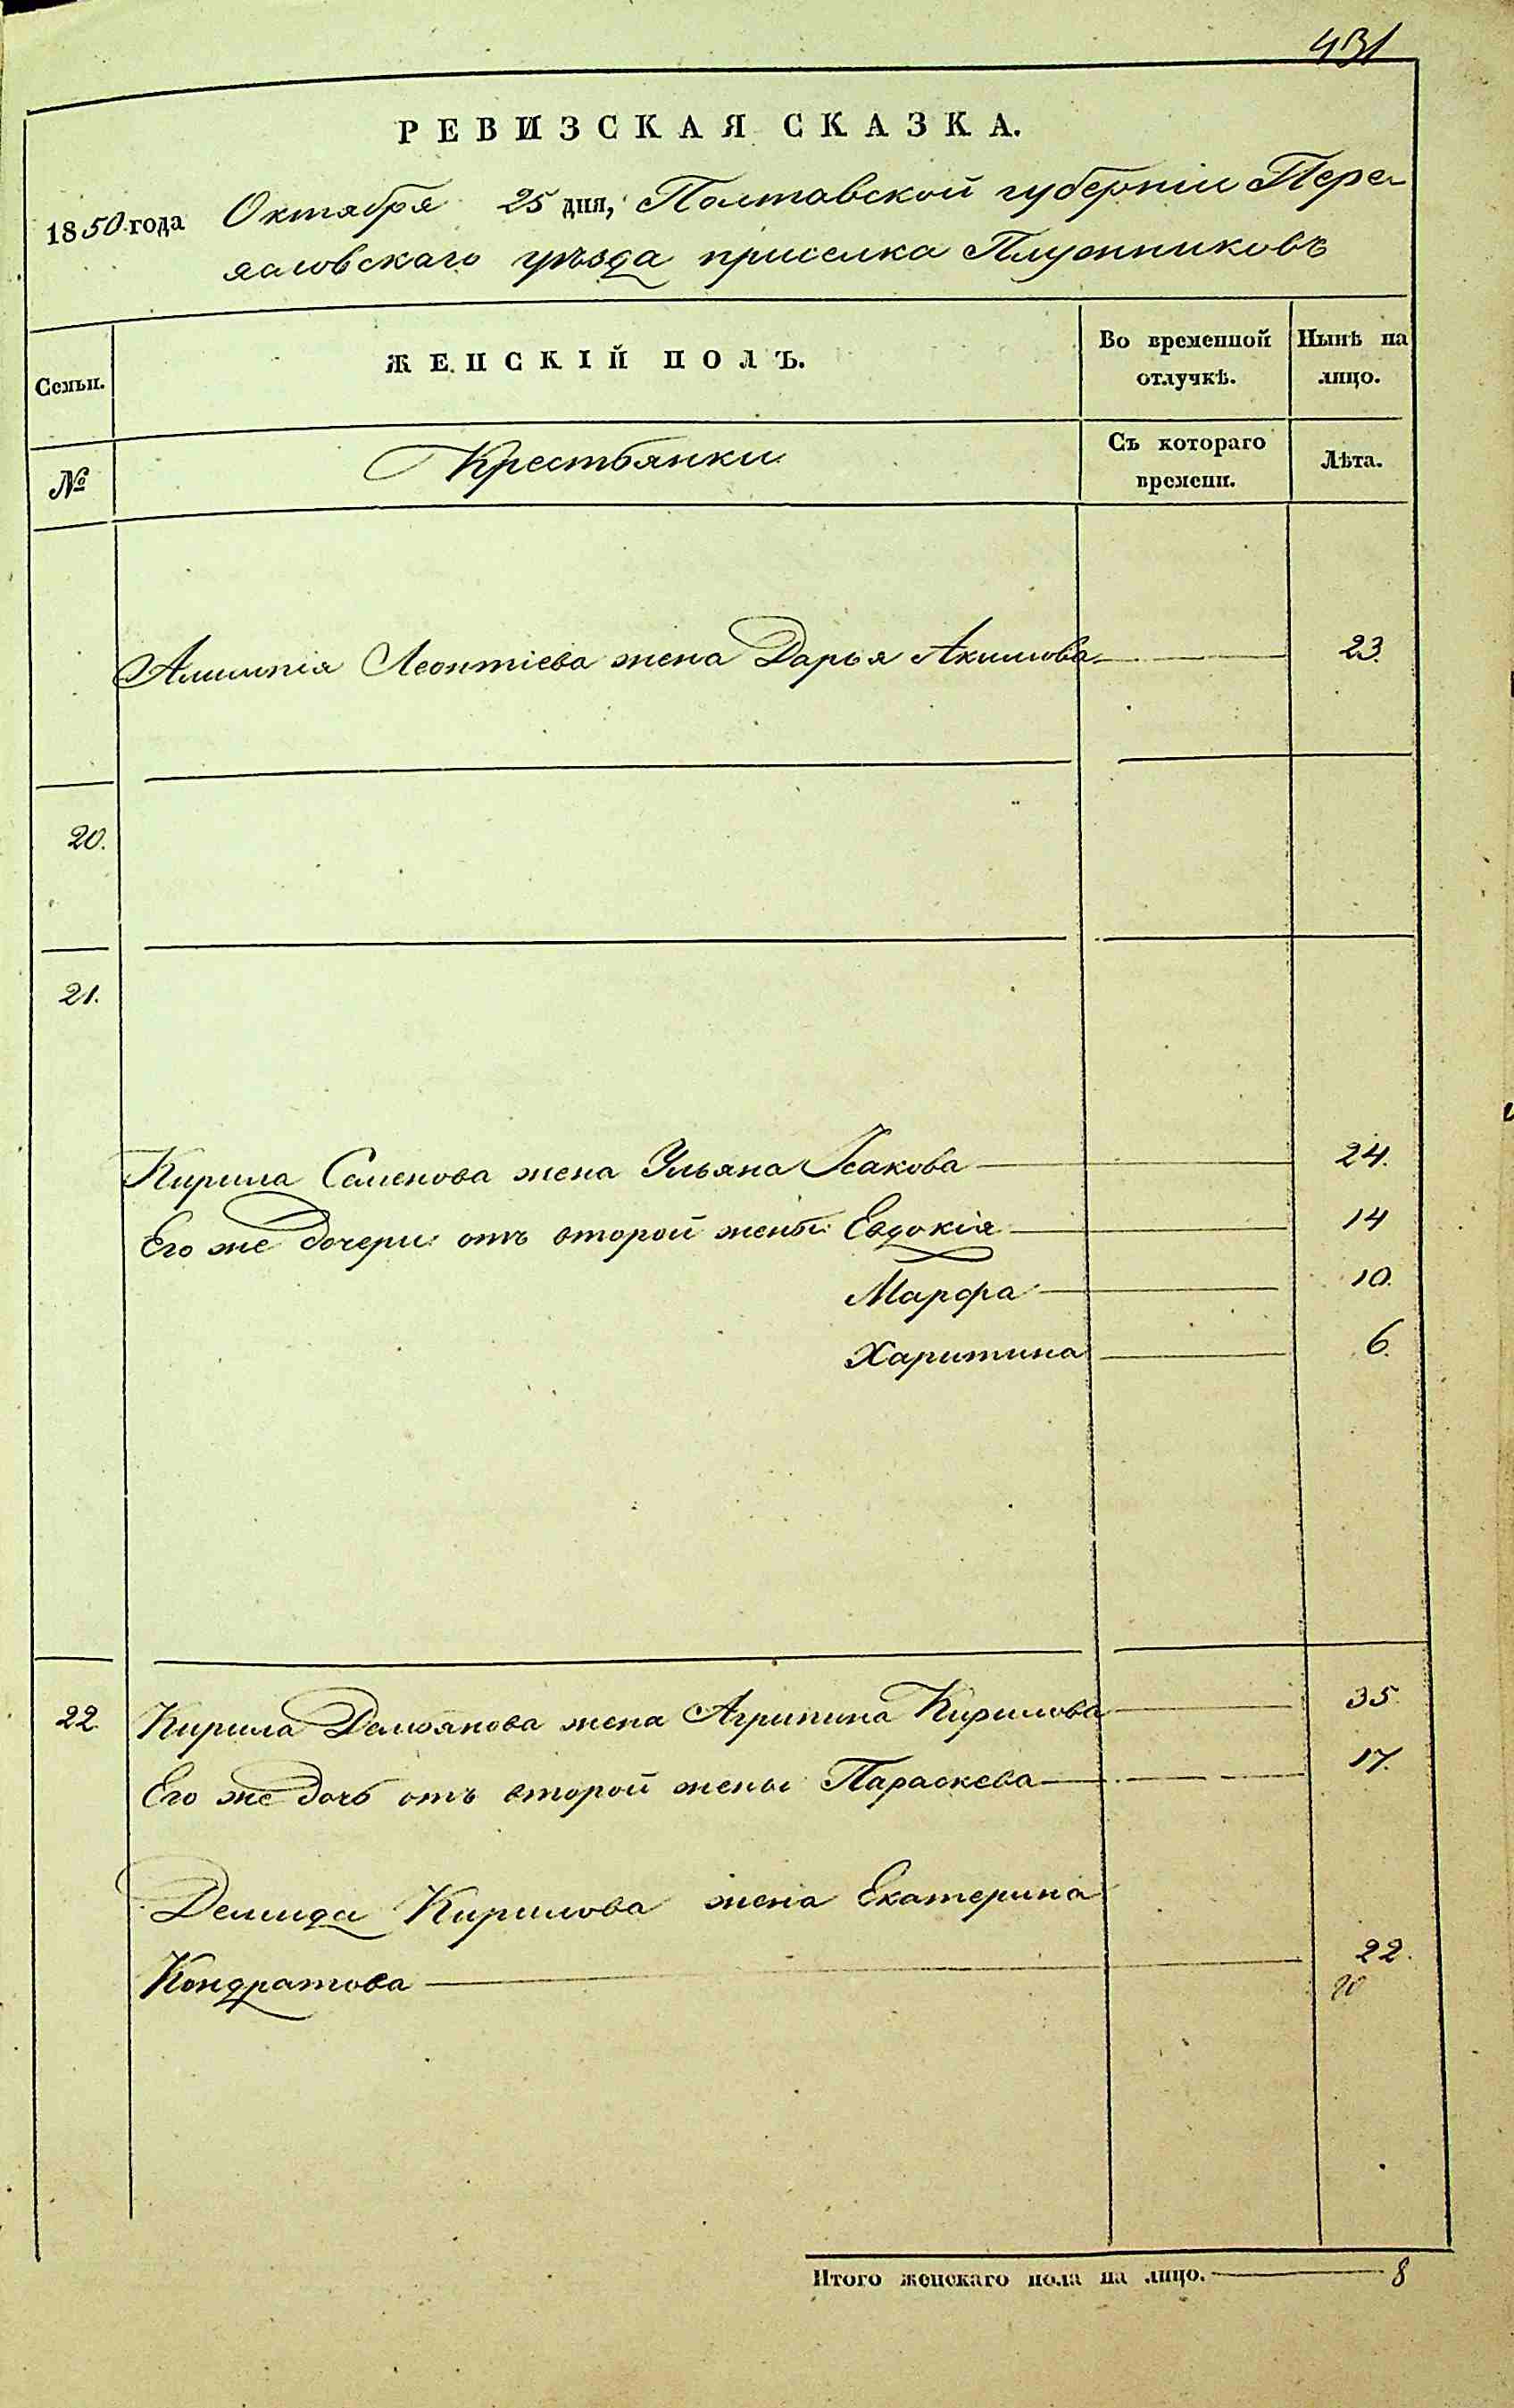 431
РЕВИЗСКАЯ СКАЗКА.
1850 года Октября 25 дня, Полтавской губерніи Пере-
яславскаго уѣзда приселка Плужниковъ
Семьи. ЖЕНСКІЙ ПОЛЪ. Во временной отлучкѣ. Нынѣ на лицо.
№ Крестьянки Съ котораго времени. Лѣта.
Алимпія Леонтіева жена Дарья Акимова 23.
20.
21.
Кирила Семенова жена Ульяна Исакова 24.
Его же дочери отъ второй жены: Евдокія 14
Марфа 10.
Харитина 6.
22. Кирила Демьянова жена Агрипина Кирилова 35.
Его же дочь отъ второй жены Параскева 17.
Демида Кирилова жена Екатерина
Кондратова 22.
Итого женскаго пола на лицо. 8